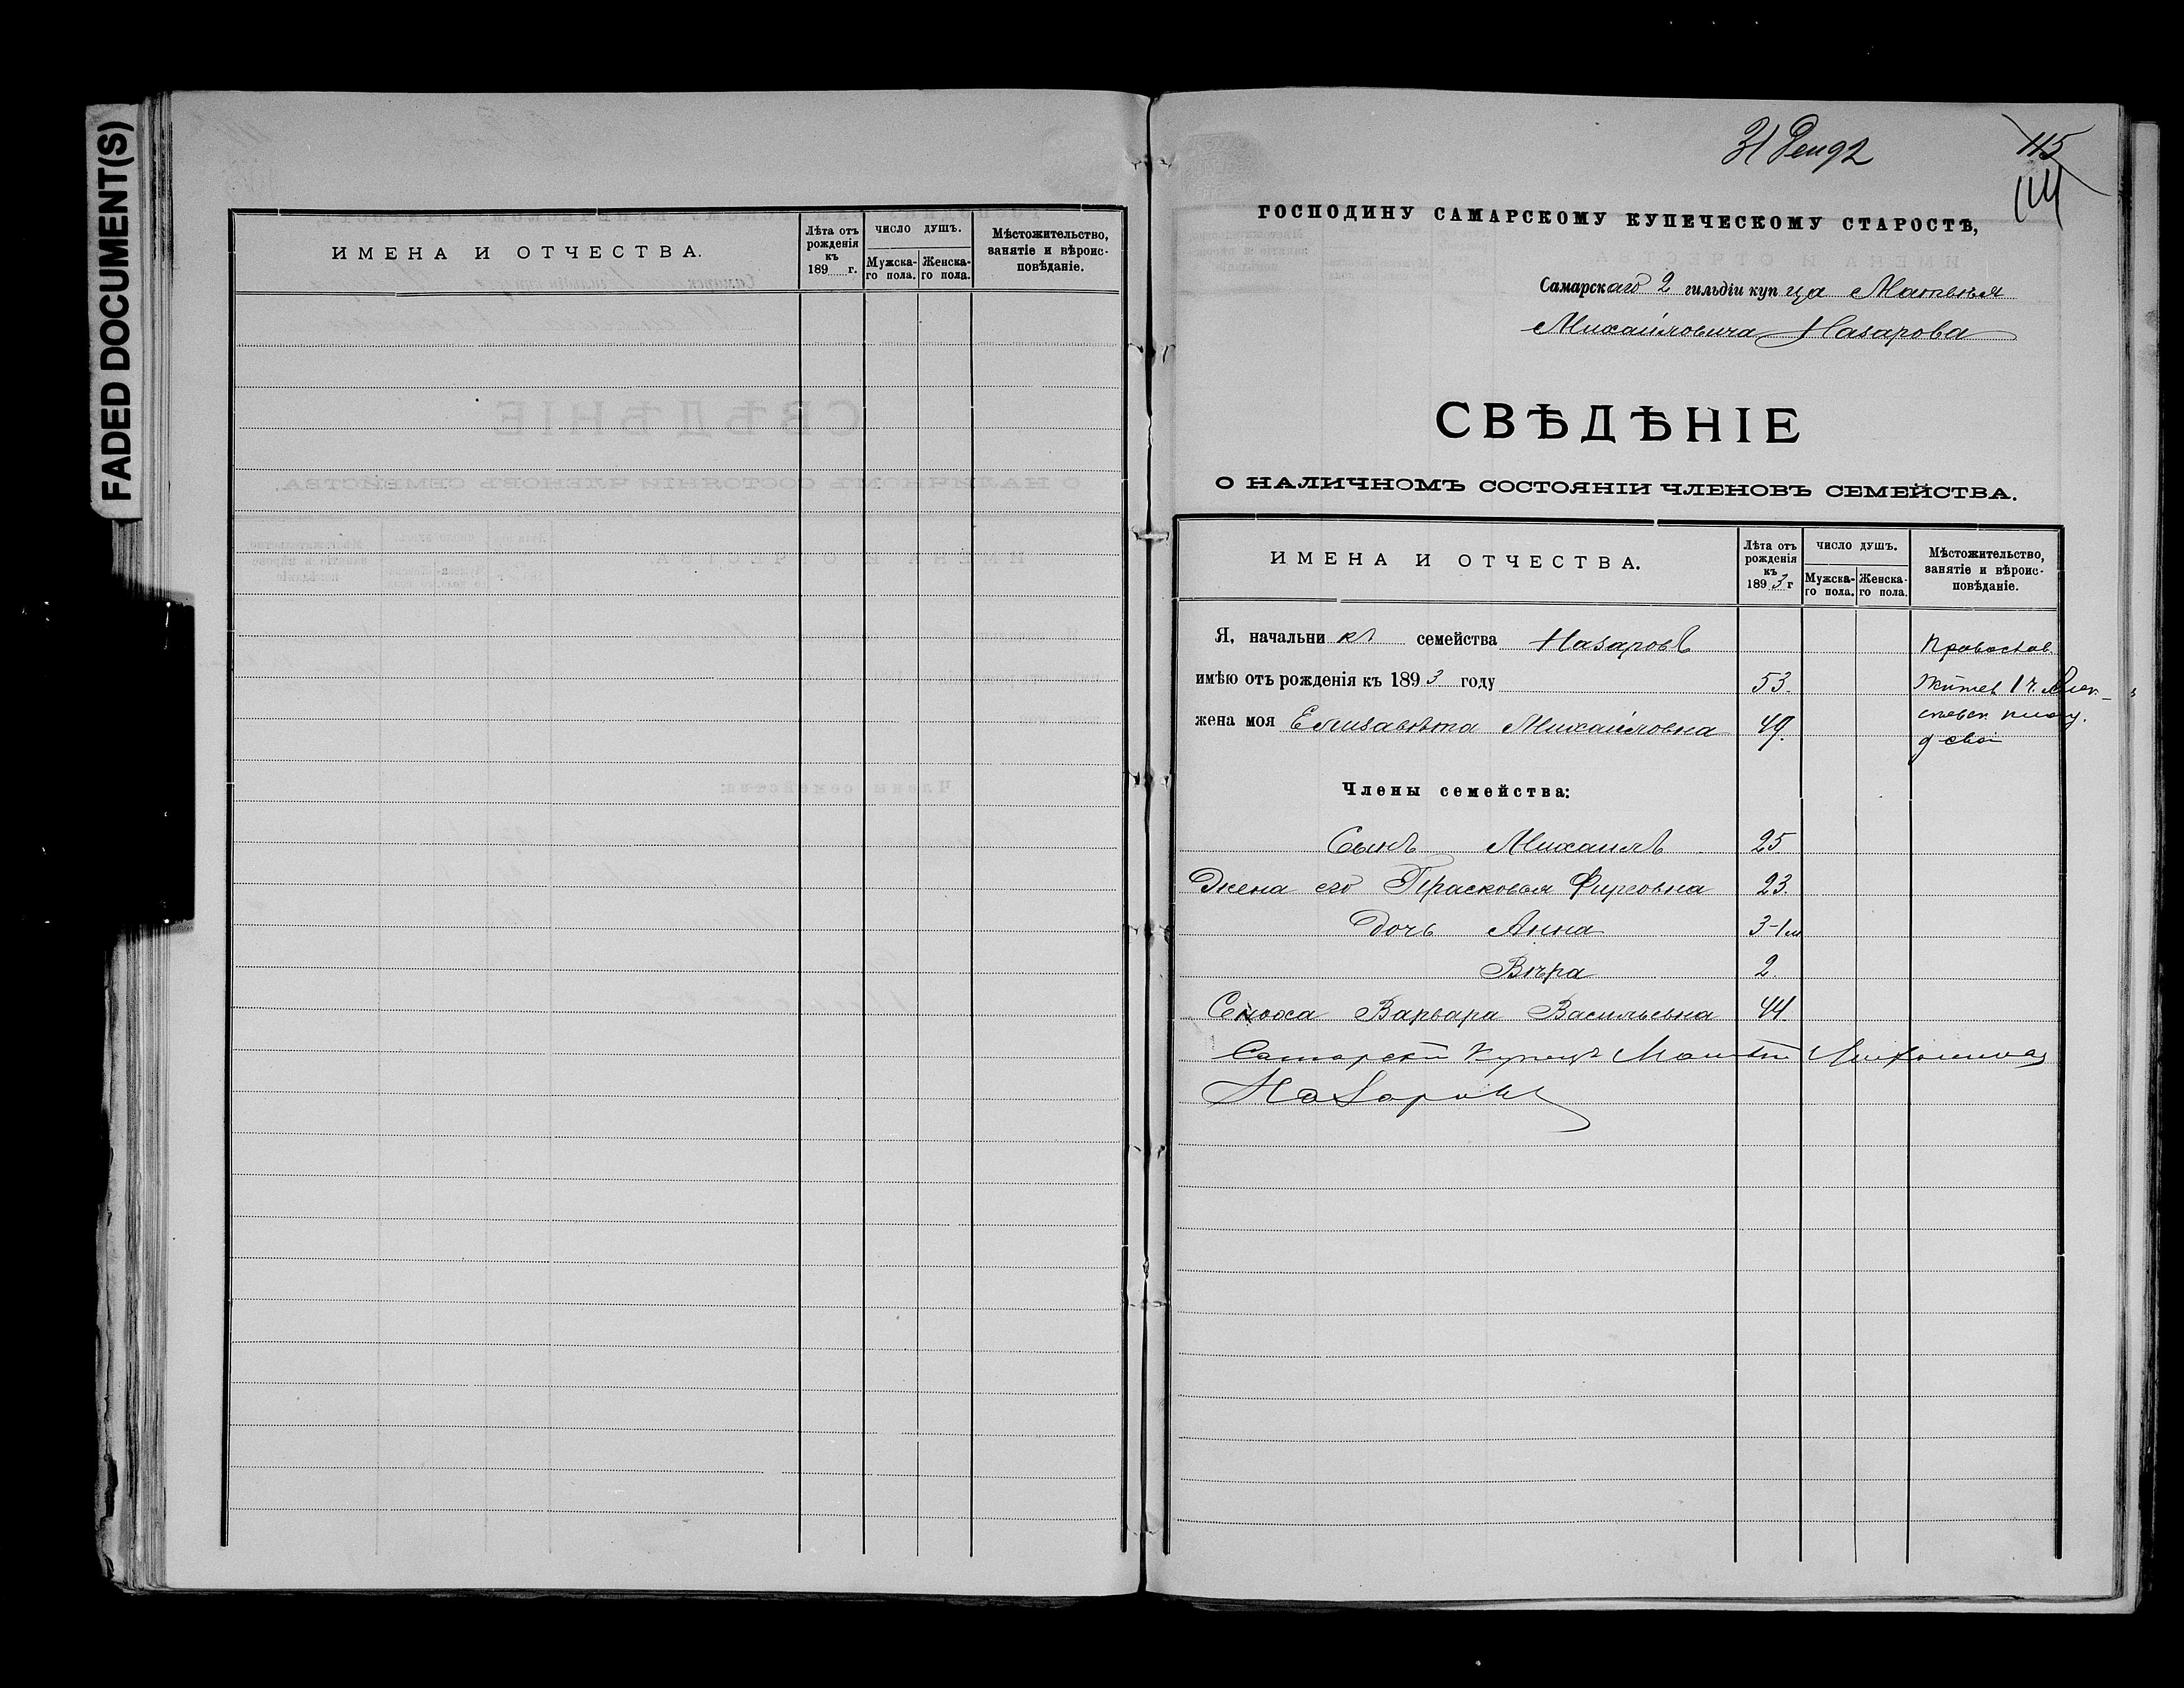 FADED DOCUMENT(S)
ИМЕНА И ОТЧЕСТВА.
Лѣта отъ рожденія къ 189 г.
ЧИСЛО ДУШЪ.
Мужска-го пола.
Женска-го пола.
Мѣстожительство, занятіе и вѣроис-повѣданіе.
31 92
115
114
ГОСПОДИНУ САМАРСКОМУ КУПЕЧЕСКОМУ СТАРОСТѢ,
Самарскаго 2 гильдіи купца Матвѣя
Михайловича Назарова
СВѢДѢНІЕ
О НАЛИЧНОМЪ СОСТОЯНІИ ЧЛЕНОВЪ СЕМЕЙСТВА.
ИМЕНА И ОТЧЕСТВА.
Лѣта отъ рожденія къ 1893 г
ЧИСЛО ДУШЪ.
Мужска-го пола.
Женска-го пола.
Мѣстожительство, занятіе и вѣроис-повѣданіе.
Я, начальникъ семейства Назаровъ Православ.
имѣю отъ рожденія къ 1893 году 53. Жител 1 ч.
жена моя Елизавѣта Михайловна 49.
Члены семейства:
Сынъ Михаилъ 25
Жена его Прасковья Фирсовна 23.
Дочь Анна 3-1м
Вѣра 2.
Сноха Варвара Васильевна 44.
Самарскій Купецъ Матвѣй
Назаровъ